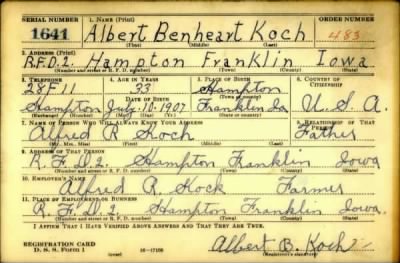 SERIAL NUMBER 1. NAME (Print) ORDER NUMBER
1641 Albert Benheart Koch 483
(First) (Middle) (Last)
2. ADDRESS (Print)
R.F.D.2. Hampton Franklin Iowa
(Number and street or R. F. D. number) (Town) (County) (State)
3. TELEPHONE 4. AGE IN YEARS 5. PLACE OF BIRTH 6. COUNTRY OF CITIZENSHIP
28F11 33 Hampton
DATE OF BIRTH (Town or county)
Hampton July-10-1907 Franklin Ia U.S.A.
(Exchange) (Number) (Mo.) (Day) (Yr.) (State or country)
7. NAME OF PERSON WHO WILL ALWAYS KNOW YOUR ADDRESS 8. RELATIONSHIP OF THAT PERSON
Alfred R Koch Father
(Mr., Mrs., Miss) (First) (Middle) (Last)
9. ADDRESS OF THAT PERSON
R.F.D.2. Hampton Franklin Iowa
(Number and street or R. F. D. number) (Town) (County) (State)
10. EMPLOYER'S NAME
Alfred R. Kock Farmer
11. PLACE OF EMPLOYMENT OR BUSINESS
R.F.D.2 Hampton Franklin Iowa.
(Number and street or R. F. D. number) (Town) (County) (State)
I AFFIRM THAT I HAVE VERIFIED ABOVE ANSWERS AND THAT THEY ARE TRUE.
REGISTRATION CARD
D. S. S. Form 1 (over) 16-17105 Albert B. Koch
(Registrant's signature)